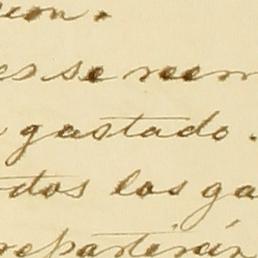 ion.
es se reen
gastado.
dos los ga
repartirán